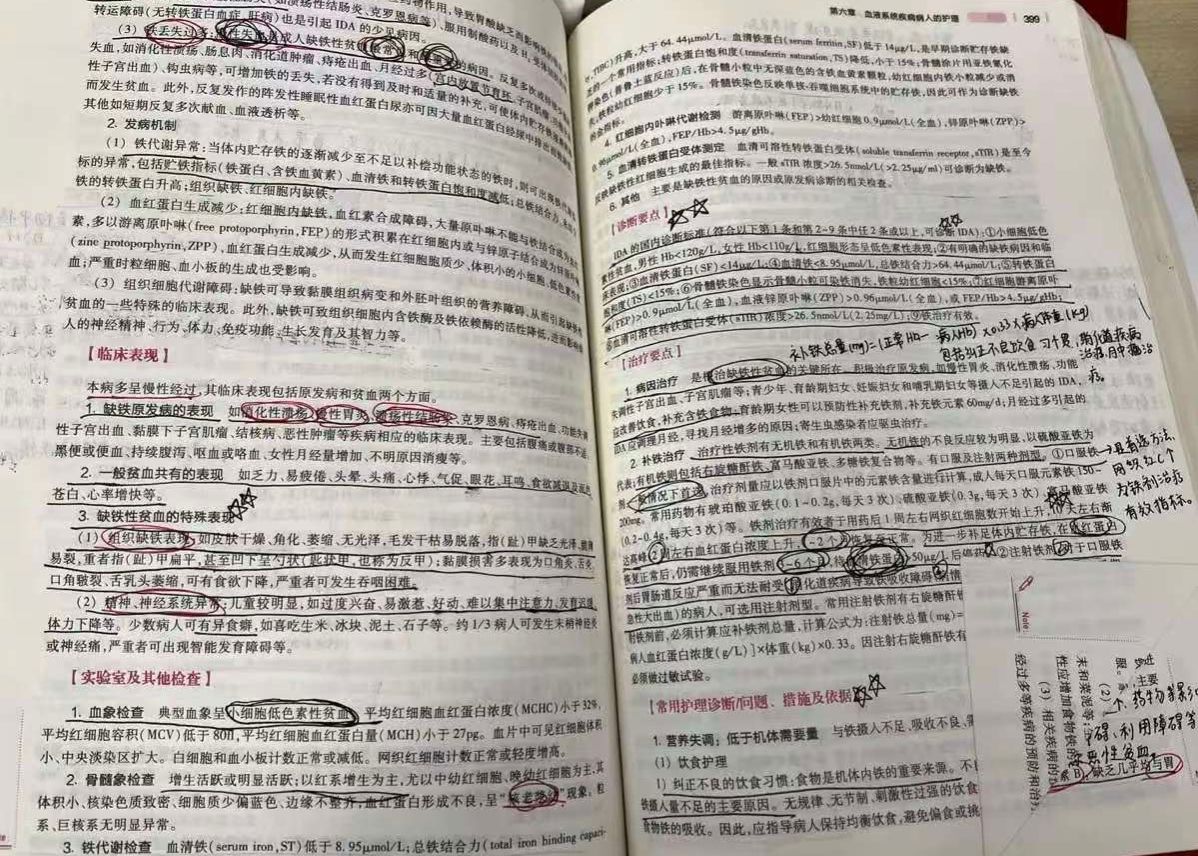 转运障碍(无转铁蛋白血症、肝病)也是引起 IDA 的少见病因。
(3) 铁丢失过多:慢性失血是成人缺铁性贫血最常见和最重要的病因。反复多次或持续
失血,如消化性溃疡、肠息肉、消化道肿瘤、痔疮出血、月经过多(宫内放置节育环、子宫肌瘤
性子宫出血)、钩虫病等,可增加铁的丢失,若没有得到及时和适量的补充,可使体内贮存铁
而发生贫血。此外,反复发作的阵发性睡眠性血红蛋白尿亦可因大量血红蛋白经尿中排出
其他如短期反复多次献血、血液透析等。
2. 发病机制
(1) 铁代谢异常:当体内贮存铁的逐渐减少至不足以补偿功能状态的铁时,则可出现铁代谢
标的异常,包括贮铁指标(铁蛋白、含铁血黄素)、血清铁和转铁蛋白饱和度减低;总铁结合力
铁的转铁蛋白升高;组织缺铁、红细胞内缺铁。
(2) 血红蛋白生成减少:红细胞内缺铁,血红素合成障碍,大量原卟啉不能与铁结合成为
素,多以游离原卟啉(free protoporphyrin,FEP)的形式积累在红细胞内或与锌原子结合成为锌
(zinc protoporphyrin,ZPP),血红蛋白生成减少,从而发生红细胞胞质少、体积小的小细胞
血;严重时粒细胞、血小板的生成也受影响。
(3) 组织细胞代谢障碍:缺铁可导致黏膜组织病变和外胚叶组织的营养障碍,从而引起缺铁性
贫血的一些特殊的临床表现。此外,缺铁可致组织细胞内含铁酶及铁依赖酶的活性降低,进而影响
人的神经精神、行为、体力、免疫功能、生长发育及其智力等。
【临床表现】
本病多呈慢性经过,其临床表现包括原发病和贫血两个方面。
1. 缺铁原发病的表现 如消化性溃疡、慢性胃炎、溃疡性结肠炎、克罗恩病、痔疮出血、功能失调
性子宫出血、黏膜下子宫肌瘤、结核病、恶性肿瘤等疾病相应的临床表现。主要包括腹痛或腹部不适、
黑便或便血、持续腹泻、呕血或咯血、女性月经量增加、不明原因消瘦等。
2. 一般贫血共有的表现 如乏力、易疲倦、头晕、头痛、心悸、气促、眼花、耳鸣、食欲减退及面色
苍白、心率增快等。
3. 缺铁性贫血的特殊表现
(1) 组织缺铁表现:如皮肤干燥、角化、萎缩、无光泽,毛发干枯易脱落,指(趾)甲缺乏光泽、脆薄
易裂,重者指(趾)甲扁平,甚至凹下呈勺状(匙状甲,也称为反甲);黏膜损害多表现为口角炎、舌炎、
口角皲裂、舌乳头萎缩,可有食欲下降,严重者可发生吞咽困难。
(2) 精神、神经系统异常:儿童较明显,如过度兴奋、易激惹、好动、难以集中注意力、发育迟缓、
体力下降等。少数病人可有异食癖,如喜吃生米、冰块、泥土、石子等。约 1/3 病人可发生末梢神经炎
或神经痛,严重者可出现智能发育障碍等。
【实验室及其他检查】
1. 血象检查 典型血象呈小细胞低色素性贫血。平均红细胞血红蛋白浓度(MCHC)小于 32%,
平均红细胞容积(MCV)低于 80fl,平均红细胞血红蛋白量(MCH)小于 27pg。血片中可见红细胞体积
小、中央淡染区扩大。白细胞和血小板计数正常或减低。网织红细胞计数正常或轻度增高。
2. 骨髓象检查 增生活跃或明显活跃;以红系增生为主,尤以中幼红细胞、晚幼红细胞为主,其
体积小、核染色质致密、细胞质少偏蓝色、边缘不整齐,血红蛋白形成不良,呈"核老浆幼"现象,粒
系、巨核系无明显异常。
3. 铁代谢检查 血清铁(serum iron,ST)低于 8.95μmol/L;总铁结合力(total iron binding capaci-
第六章 血液系统疾病病人的护理 399
ty,TIBC)升高,大于 64.44μmol/L。血清铁蛋白(serum ferritin,SF)低于 14μg/L,是早期诊断贮存铁缺
一个常用指标;转铁蛋白饱和度(transferrin saturation,TS)降低,小于 15%;骨髓涂片用亚铁氰化
染色(普鲁士蓝反应)后,在骨髓小粒中无深蓝色的含铁血黄素颗粒,幼红细胞内铁小粒减少或消
失,铁粒幼红细胞少于 15%。骨髓铁染色反映单核-吞噬细胞系统中的贮存铁,因此可作为诊断缺铁
4. 红细胞内卟啉代谢检测 游离原卟啉(FEP)>幼红细胞 0.9μmol/L(全血),锌原卟啉(ZPP)>
0.96μmol/L(全血),FEP/Hb>4.5μg/gHb。
5. 血清转铁蛋白受体测定 血清可溶性转铁蛋白受体(soluble transferrin receptor,sTfR)是至今
反映缺铁性红细胞生成的最佳指标。一般 sTfR 浓度>26.5nmol/L(>2.25μg/ml)可诊断为缺铁。
6. 其他 主要是缺铁性贫血的原因或原发病诊断的相关检查。
【诊断要点】
IDA 的国内诊断标准(符合以下第 1 条和第 2~9 条中任 2 条或以上,可诊断 IDA):①小细胞低色
素性贫血,男性 Hb<120g/L,女性 Hb<110g/L,红细胞形态呈低色素性表现;②有明确的缺铁病因和临
床表现;③血清铁蛋白(SF)<14μg/L;④血清铁<8.95μmol/L,总铁结合力>64.44μmol/L;⑤转铁蛋白
饱和度(TS)<15%;⑥骨髓铁染色显示骨髓小粒可染铁消失,铁粒幼红细胞<15%;⑦红细胞游离原卟
啉(FEP)>0.9μmol/L(全血),血液锌原卟啉(ZPP)>0.96μmol/L(全血),或 FEP/Hb>4.5μg/gHb;
⑧血清可溶性转铁蛋白受体(sTfR)浓度>26.5nmol/L(2.25mg/L);⑨铁治疗有效。
补铁总量(mg)=(正常Hb-病人Hb)×0.33×病人体重(kg)
包括纠正不良饮食习惯,消化道疾病
治疗,月中
病。
【治疗要点】
1. 病因治疗 是根治缺铁性贫血的关键所在。积极治疗原发病,如慢性胃炎、消化性溃疡、功能
失调性子宫出血、子宫肌瘤等;青少年、育龄期妇女、妊娠妇女和哺乳期妇女等摄入不足引起的 IDA,
应改善饮食,补充含铁食物,育龄期女性可以预防性补充铁剂,补充铁元素 60mg/d;月经过多引起的
IDA 应调理月经,寻找月经增多的原因;寄生虫感染者应驱虫治疗。
2. 补铁治疗 治疗性铁剂有无机铁和有机铁两类。无机铁的不良反应较为明显,以硫酸亚铁为
代表;有机铁则包括右旋糖酐铁、富马酸亚铁、多糖铁复合物等。有口服及注射两种剂型。①口服铁
剂:一般情况下首选,治疗剂量应以铁剂口服片中的元素铁含量进行计算,成人每天口服元素铁 150~
200mg。常用药物有琥珀酸亚铁(0.1~0.2g,每天 3 次)、硫酸亚铁(0.3g,每天 3 次)、富马酸亚铁
(0.2~0.4g,每天 3 次)等。铁剂治疗有效者于用药后 1 周左右网织红细胞数开始上升,10 天左右渐
达高峰;2 周左右血红蛋白浓度上升,1~2 个月恢复至正常。为进一步补足体内贮存铁,在血红蛋白
恢复正常后,仍需继续服用铁剂 3~6 个月,待血清铁蛋白>50μg/L 后停药。②注射铁剂:对于口服铁
剂后胃肠道反应严重而无法耐受、消化道疾病导致铁吸收障碍、病情
急性大出血)的病人,可选用注射剂型。常用注射铁剂有右旋糖酐铁
射铁剂前,必须计算应补铁剂总量,计算公式为:注射铁总量(mg)=
病人血红蛋白浓度(g/L)]×体重(kg)×0.33。因注射右旋糖酐铁有
必须做过敏试验。
→是首选方法,
网织红C↑
为铁剂治疗
有效指标。
【常用护理诊断/问题、措施及依据】
1. 营养失调:低于机体需要量 与铁摄入不足、吸收不良、需
(1) 饮食护理
1) 纠正不良的饮食习惯:食物是机体内铁的重要来源。不
铁摄入量不足的主要原因。无规律、无节制、刺激性过强的饮食
食物铁的吸收。因此,应指导病人保持均衡饮食,避免偏食或挑
Note:
未和菜泥等
性应增加食物铁的
(3) 相关疾病的
经过多等疾病的预防和治疗
主要
药物影响
利用障碍等
恶性贫血
缺乏几乎均与胃